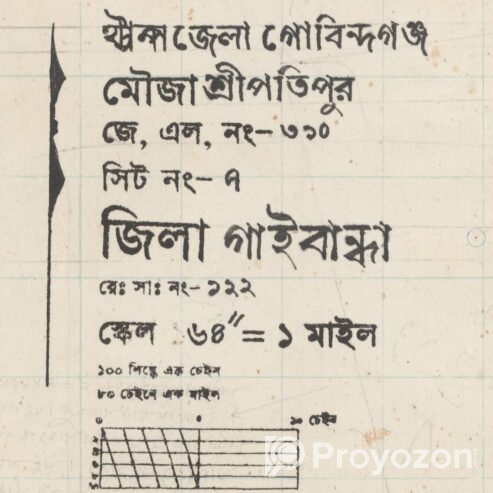 জেলা গোবিন্দগঞ্জ
মৌজা শ্রীপতিপুর
জে, এল, নং- ৩১০
সিট নং- ৭
জিলা গাইবান্ধা
রেঃ সাঃ নং- ১২২
স্কেল ৬৪″ = ১ মাইল
১০০ লিঙ্কে এক চেইন
৮০ চেইনে এক মাইল
০ ০ ১০ চেইন
Proyozon